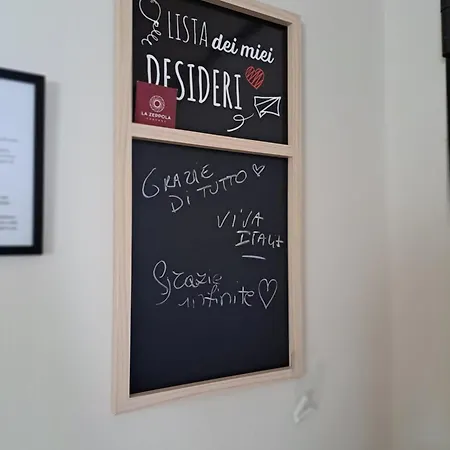 LISTA dei miei
DESIDERI
LA ZEPPOLA
GRAZIE
DI TUTTO
VIVA
ITALY
Grazie
infinite